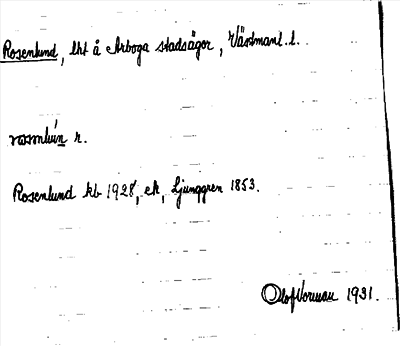 Rosenlund, lht å Arboga stadsägor, Västmanl. l.
r.
Rosenlund kb 1928, ek, Ljunggren 1853.
Olof Vorman 1931.